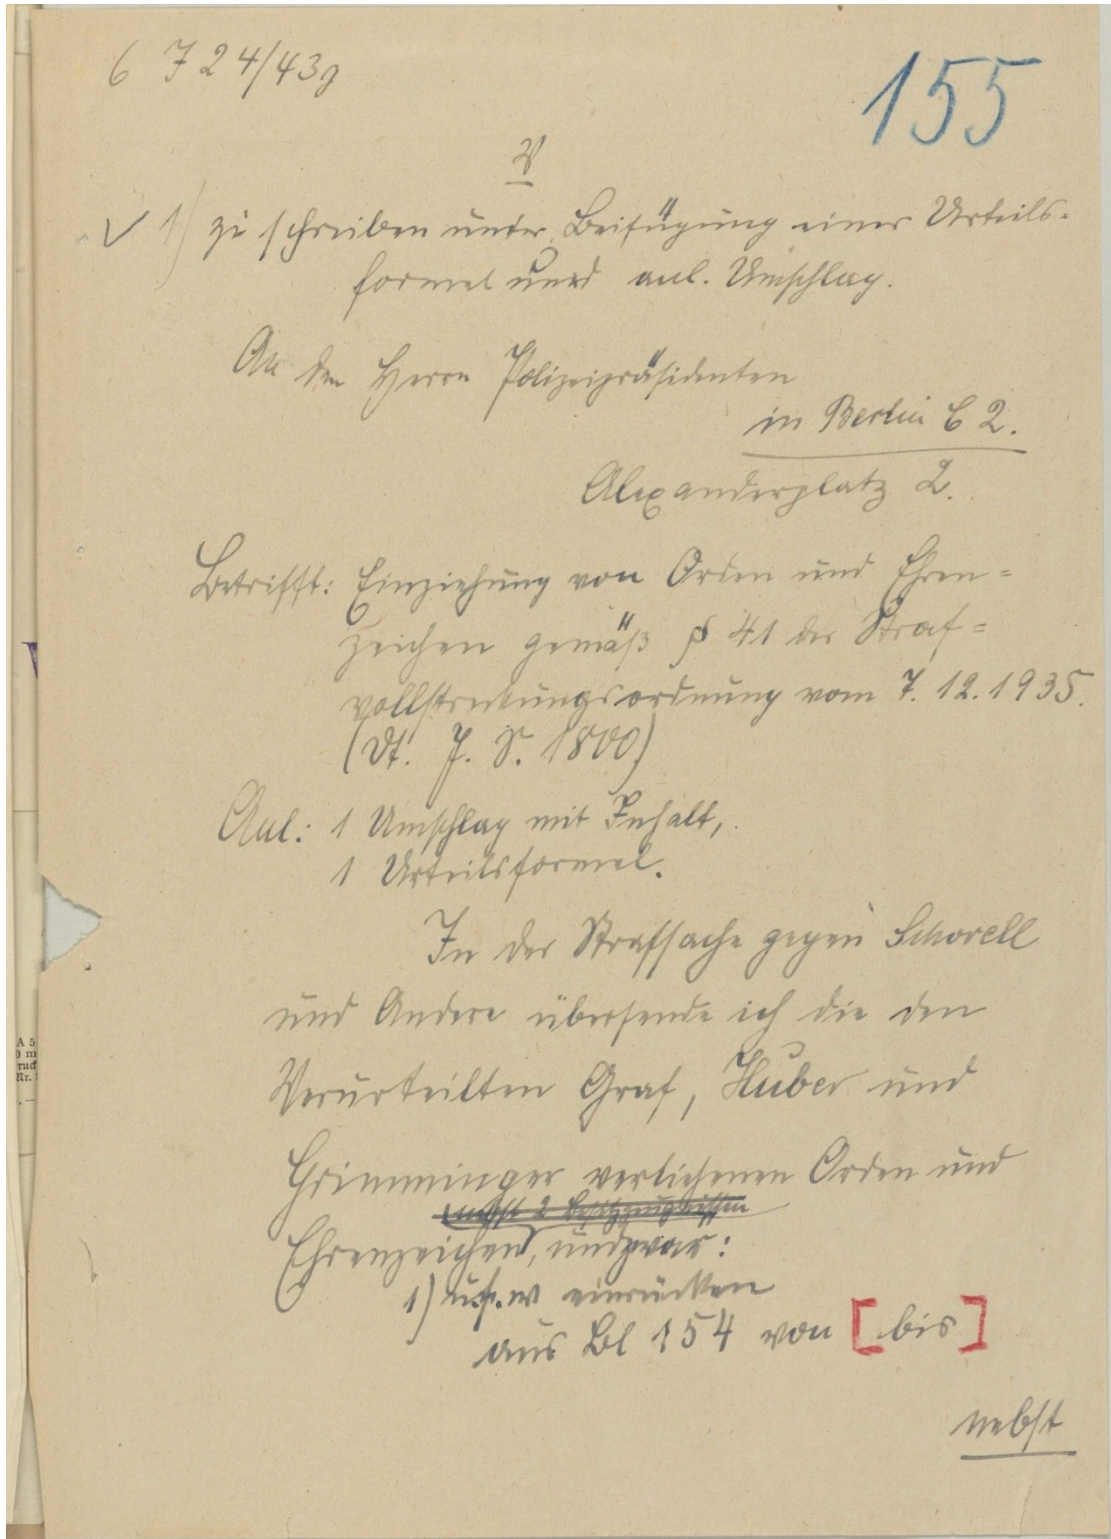 6 J 24/43g
155
V
1) zu schreiben unter Beifügung einer Urteils-
formel und anl. Umschlag.
An den Herrn Polizeipräsidenten
in Berlin C 2.
Alexanderplatz 2.
Betrifft: Einziehung von Orden und Ehren=
zeichen gemäß § 41 der Straf=
vollstreckungsordnung vom 7.12.1935.
(Dt. J. S. 1800)
Anl.: 1 Umschlag mit Inhalt,
1 Urteilsformel.
In der Strafsache gegen Schorell
und Andere übersende ich die den
Verurteilten Graf, Huber und
Grimminger verliehenen Orden und
nebst 2 Besitzzeugnissen
Ehrenzeichen, und zwar:
1) u.s.w einrücken
aus Bl 154 von [bis]
nebst
A 5
ruck
Nr.